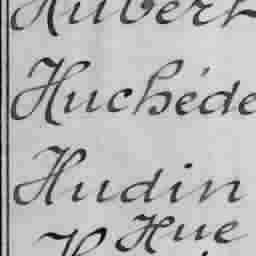 Hubert
Huchéde
Hudin
Hue